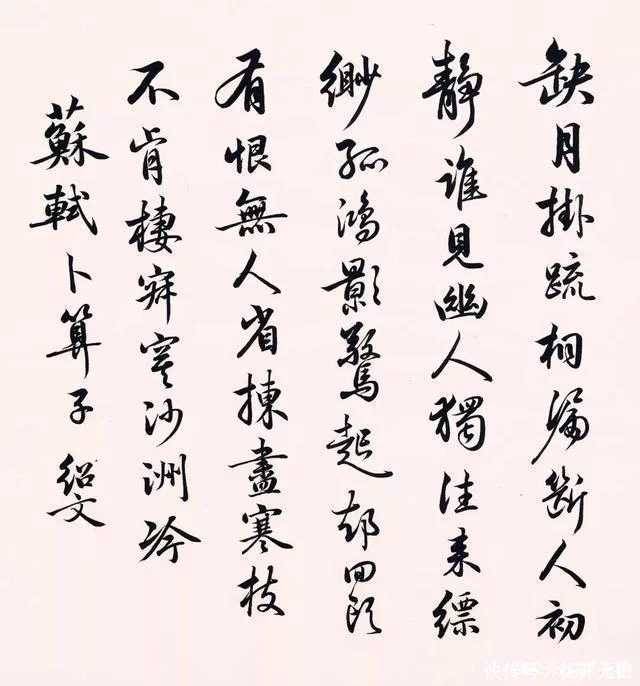 缺月掛疏桐漏斷人初
静誰見幽人獨往来縹
緲孤鴻影驚起却回頭
有恨無人省揀盡寒枝
不肯棲寂寞沙洲冷
蘇軾卜算子 紹文